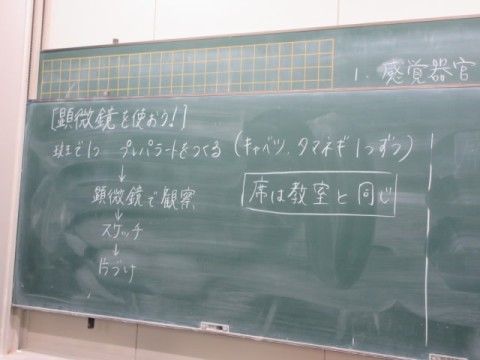 1. 感覚器官
[顕微鏡を使おう!]
班で1つ プレパラートをつくる (キャベツ、タマネギ1つずつ)
↓
顕微鏡で観察
↓
スケッチ
↓
片づけ
席は教室と同じ